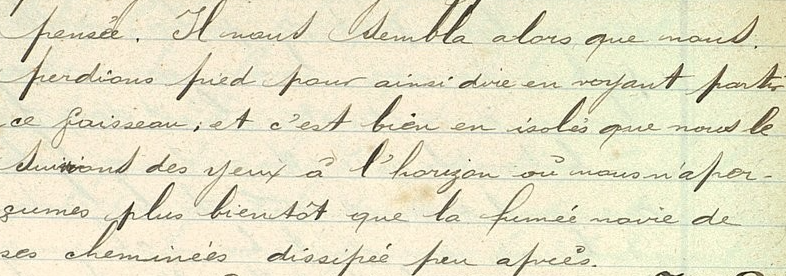 pensée. Il nous sembla alors que nous
perdions pied pour ainsi dire en voyant partir
ce faisseau ; et c'est bien en isolés que nous le
suivions des yeux à l'horizon où nous n'aper-
çumes plus bientôt que la fumée noire de
ses cheminées dissipée peu après.